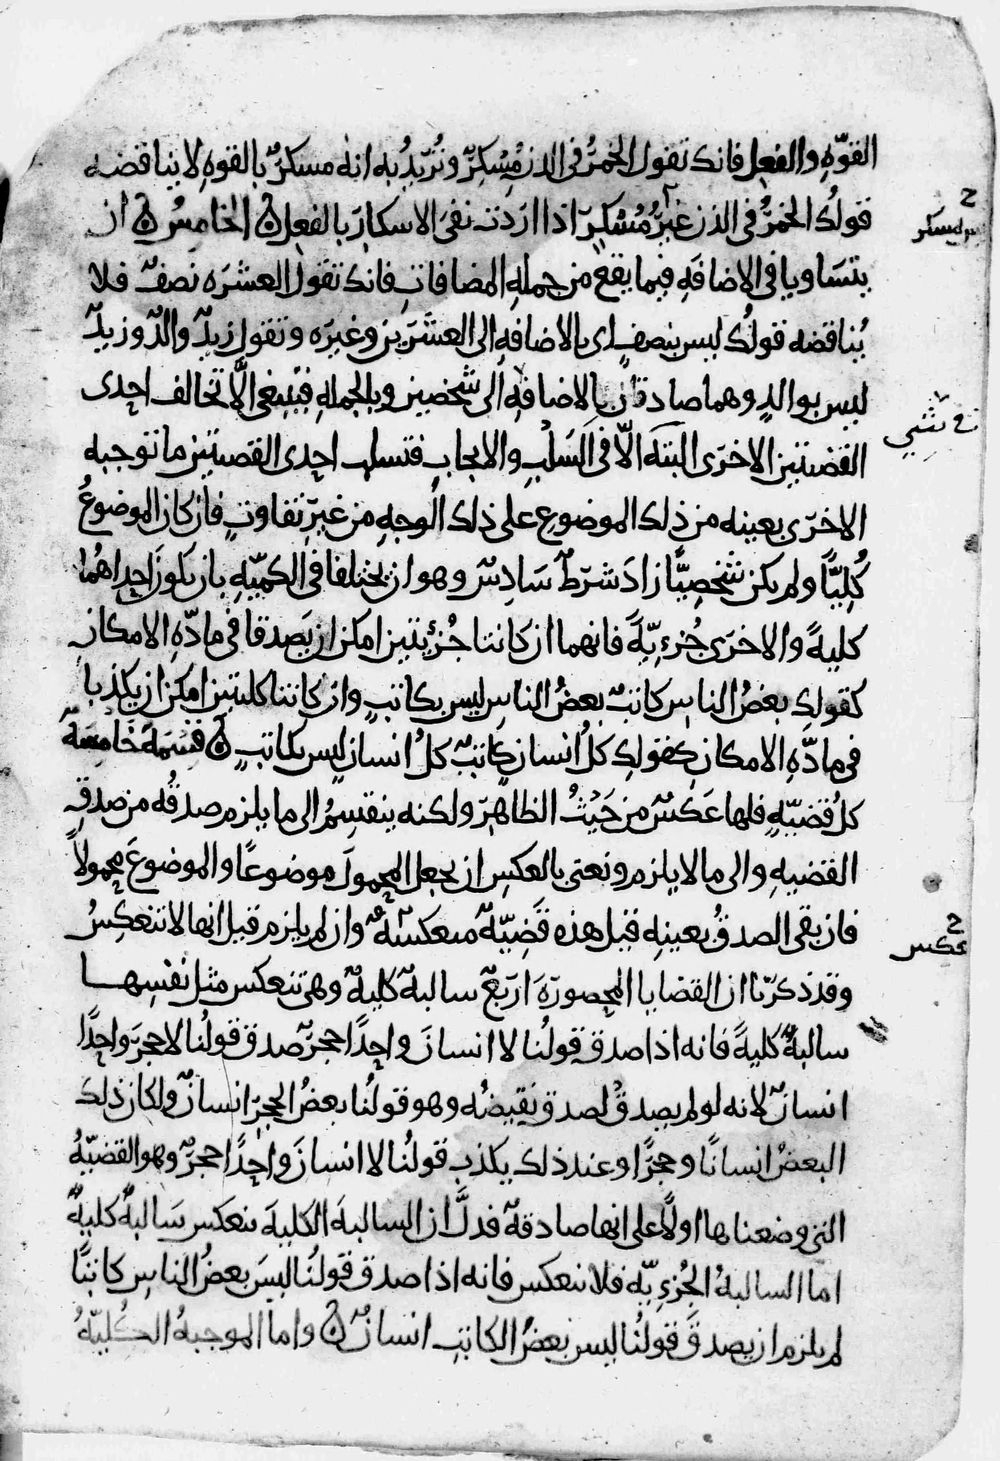 القوّةِ والفعلِ فانك تقول الخمرُ في الدن مُسْكِرٌ وتُرِيدُ به انه مسكرٌ بالقوةِ لا يناقضه
قولُك الخمرُ في الدن غيرُ مُسْكِرٍ اذا اردتَ نفىَ الاسكارَ بالفعل ۞ الخامسُ ۞ ان
يتسَاويا في الاضافَةِ فيما يقع من جملةِ المضافاتِ فانك تقول العشرَه نصفٌ فلا
يُناقضه قولُك ليس بنصفٍ اى بالاضافةِ الى العشَرين وغيرَه وتقول زيدٌ والدٌ وزيدٌ
ليس بوالدٍ وهما صادقان بالاضافةِ الى شخصين وبالجملةِ فينبغى الَّا تخالف احدى
القضيتين الاخرَى البتَه الَّا في السَلْبِ والايجابِ فتسلب احدى القضيتين ما توجبه
الاخرَى بعينه من ذلك الموضوع على ذلك الوجهِ من غير تفاوتٍ فان كان الموضوعُ
كُلِيًّا ولم يكن شخصِيًّا زادَ شرطٌ سَادِسٌ وهو ان يختلفا في الكميّهِ بان يكونَ احداهُما
كليةً والاخرَى جُزءِيّةً فانهما ان كانتا جُزءيتين امكن ان يَصدقا في مادّهِ الامكانِ
كقولك بعضُ الناس كاتبٌ بعضُ الناس ليس بكاتبٍ وان كانتا كليتين امكن ان يكذبا
في مادَّهِ الامكان كقولك كلُ انسان كاتبٌ كلُ انسان ليس بكاتبٍ ۞ قِسْمَةٌ خامِسَةٌ
كلُ قضيّهٍ فلها عَكسٌ من حَيْثُ الظاهِر ولكنه ينقسِمُ الى ما يلزم صدقُه من صدقِ
القضيهِ والى ما لا يلزم ونعنى بالعكسِ ان يجعل المحمولَ موضوعًا والموضوعَ محمولاً
فان بقى الصدقُ بعينِهِ قيل هذه قَضِيّةٌ منعكسَةٌ وان لم يلزم قيل انها لا تنعكِسُ
وقد ذكرنا ان القضايا المحصورَةِ اربعٌ سالبةٌ كليةٌ وهى تنعكس مثل نفسِها
سالبةً كليةً فانه اذا صدق قولُنا لا انسانَ واحِدًا حجرٌ صدق قولُنا لا حجرَ واحِدًا
انسانٌ لانه لو لم يصدقْ لصدق نقيضُه وهو قولُنا بعضُ الحجرِ انسانٌ ولكان ذلك
البعضُ انسانًا وحجرًا وعند ذلك يكذب قولُنا لا انسانَ واحِدًا حجرٌ وهو القضيّهُ
التى وضعناها اولاً على انها صادقةٌ فدلَّ ان السالبةَ الكليةَ تنعكس سَالبةٌ كليةٌ
اما السالبةُ الجُزءِيّه فلا تنعكس فانه اذا صدق قولُنا ليسَ بعضُ الناسِ كاتبًا
لم يلزم ان يصدقَ قولُنا ليس بعضُ الكاتبِ انسانٌ ۞ واما الموجبهُ الكُليّهُ
ح
ليس بمسكر
ح
عكس